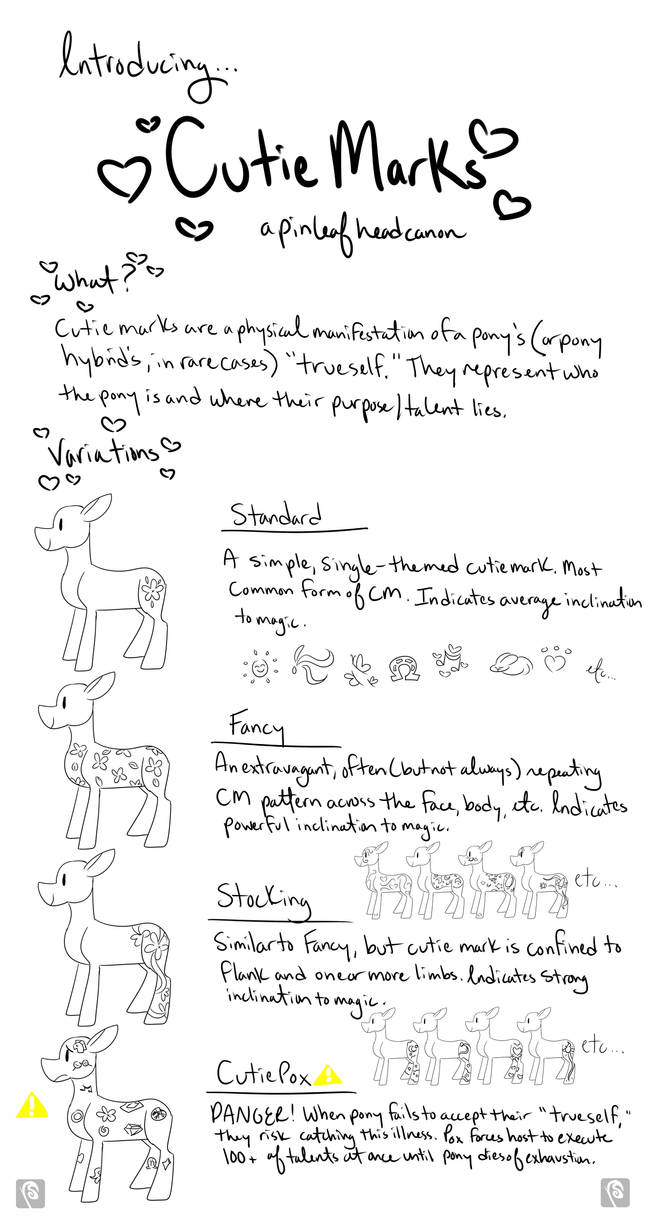 Introducing...
Cutie Marks
a pinleaf headcanon
What?
Cutie marks are a physical manifestation of a pony's (or pony
hybrid's, in rare cases) "true self." They represent who
the pony is and where their purpose/talent lies.
Variations
Standard
A simple, single-themed cutie mark. Most
common form of CM. Indicates average inclination
to magic.
etc...
Fancy
An extravagant, often (but not always) repeating
CM pattern across the face, body, etc. Indicates
powerful inclination to magic.
etc...
Stocking
Similar to Fancy, but cutie mark is confined to
flank and one or more limbs. Indicates strong
inclination to magic.
etc...
Cutie Pox
DANGER! When pony fails to accept their "true self,"
they risk catching this illness. Pox forces host to execute
100+ of talents at once until pony dies of exhaustion.